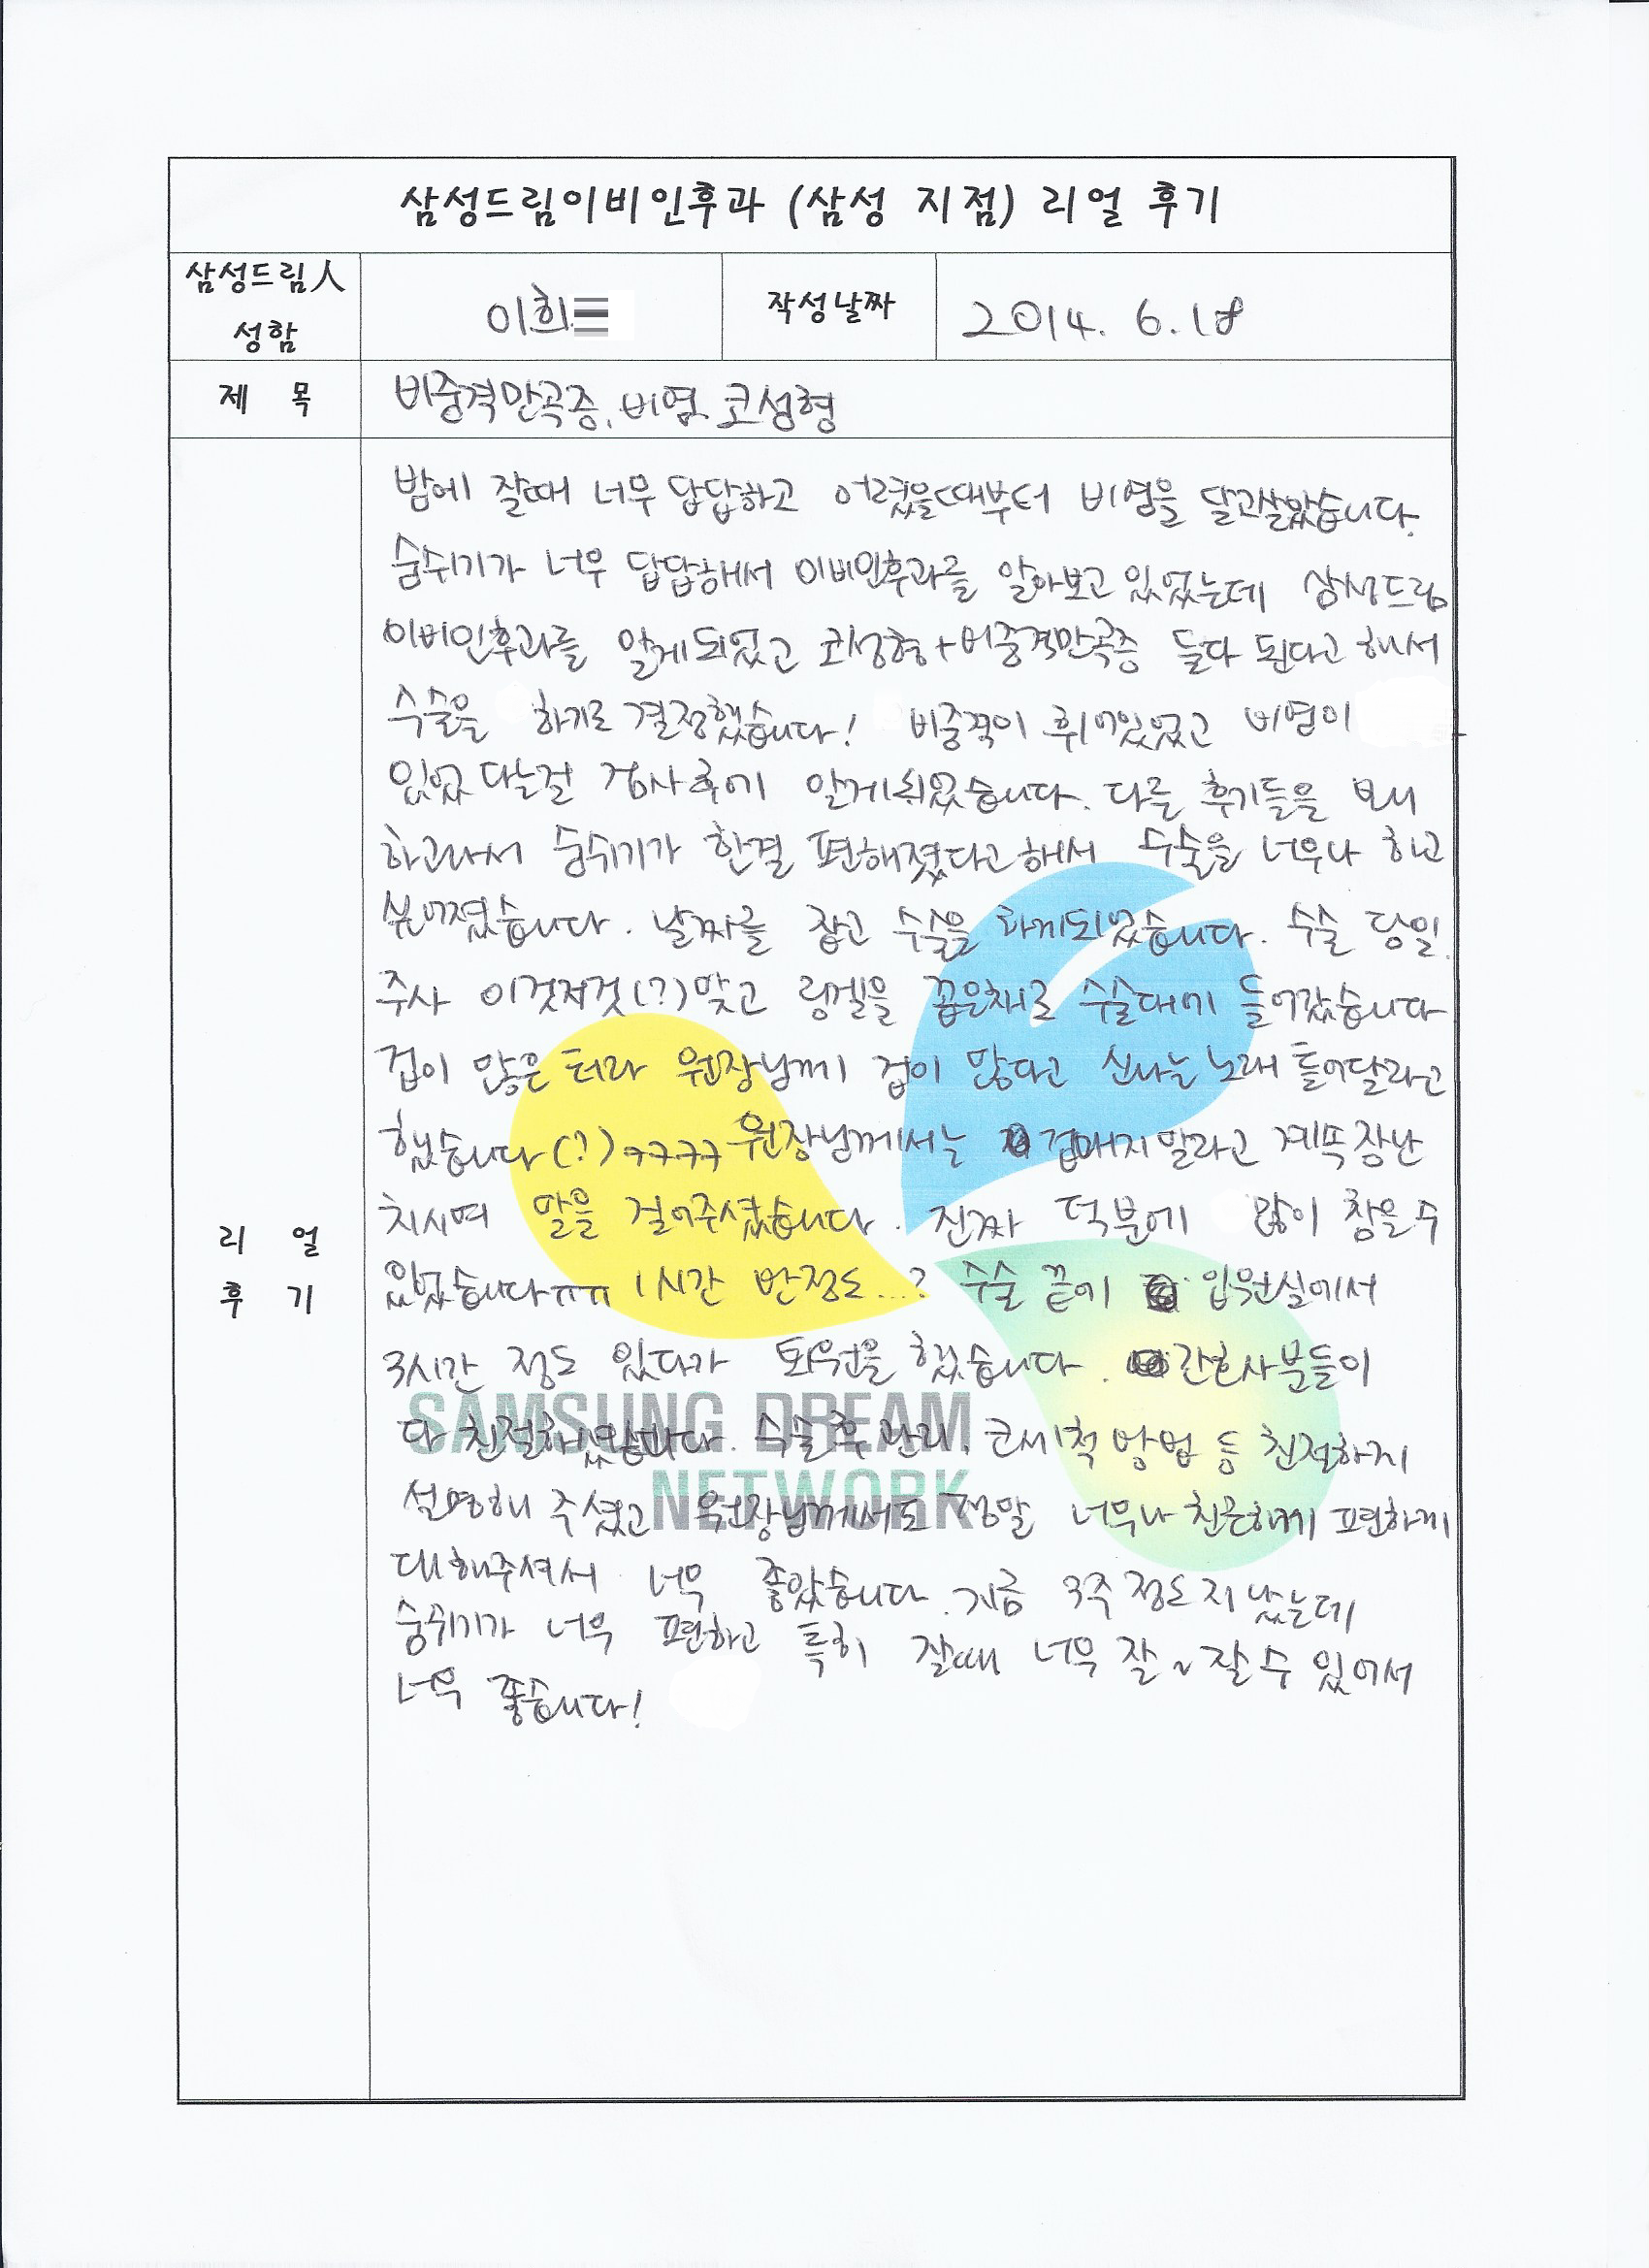 삼성드림이비인후과 (삼성 지점) 리얼 후기
삼성드림人
성함
이희
작성날짜
2014. 6.18
제 목
비중격만곡증, 비염. 코성형
밤에 잘때 너무 답답하고 어렸을때부터 비염을 달고살았습니다.
숨쉬기가 너무 답답해서 이비인후과를 알아보고 있었는데 삼성드림
이비인후과를 알게되었고 코성형+비중격만곡증 둘다 된다고 해서
수술을 하기로 결정했습니다! 비중격이 휘어있었고 비염이
있었다는걸 검사후에 알게되었습니다. 다른 후기들을 보니
하고나서 숨쉬기가 한결 편해졌다고해서 수술을 너무나 하고
싶어졌습니다. 날짜를 잡고 수술을 하게되었습니다. 수술 당일.
주사 이것저것(?)맞고 링겔을 꼽은채로 수술대에 들어갔습니다
겁이 많은 터라 원장님께 겁이 많다고 신나는노래 틀어달라고
했습니다(?)ㅋㅋㅋㅋ 원장님께서는 겁내지말라고 계속장난
치시며 말을 걸어주셨습니다. 진짜 덕분에 많이 참을수
있었습니다ㅠㅠ 1시간 반정도...? 수술 끝에 입원실에서
3시간 정도 있다가 퇴원을 했습니다. 간호사분들이
다 친절하셨습니다. 수술후관리, 코세척방법 등 친절하게
설명해 주셨고 원장님께서도 정말 너무나 친근하게 편하게
대해주셔서 너무 좋았습니다. 지금 3주정도지났는데
숨쉬기가 너무 편하고 특히 잘때 너무 잘~잘수 있어서
너무 좋습니다!
리 얼
후 기
SAMSUNG DREAM
NETWORK